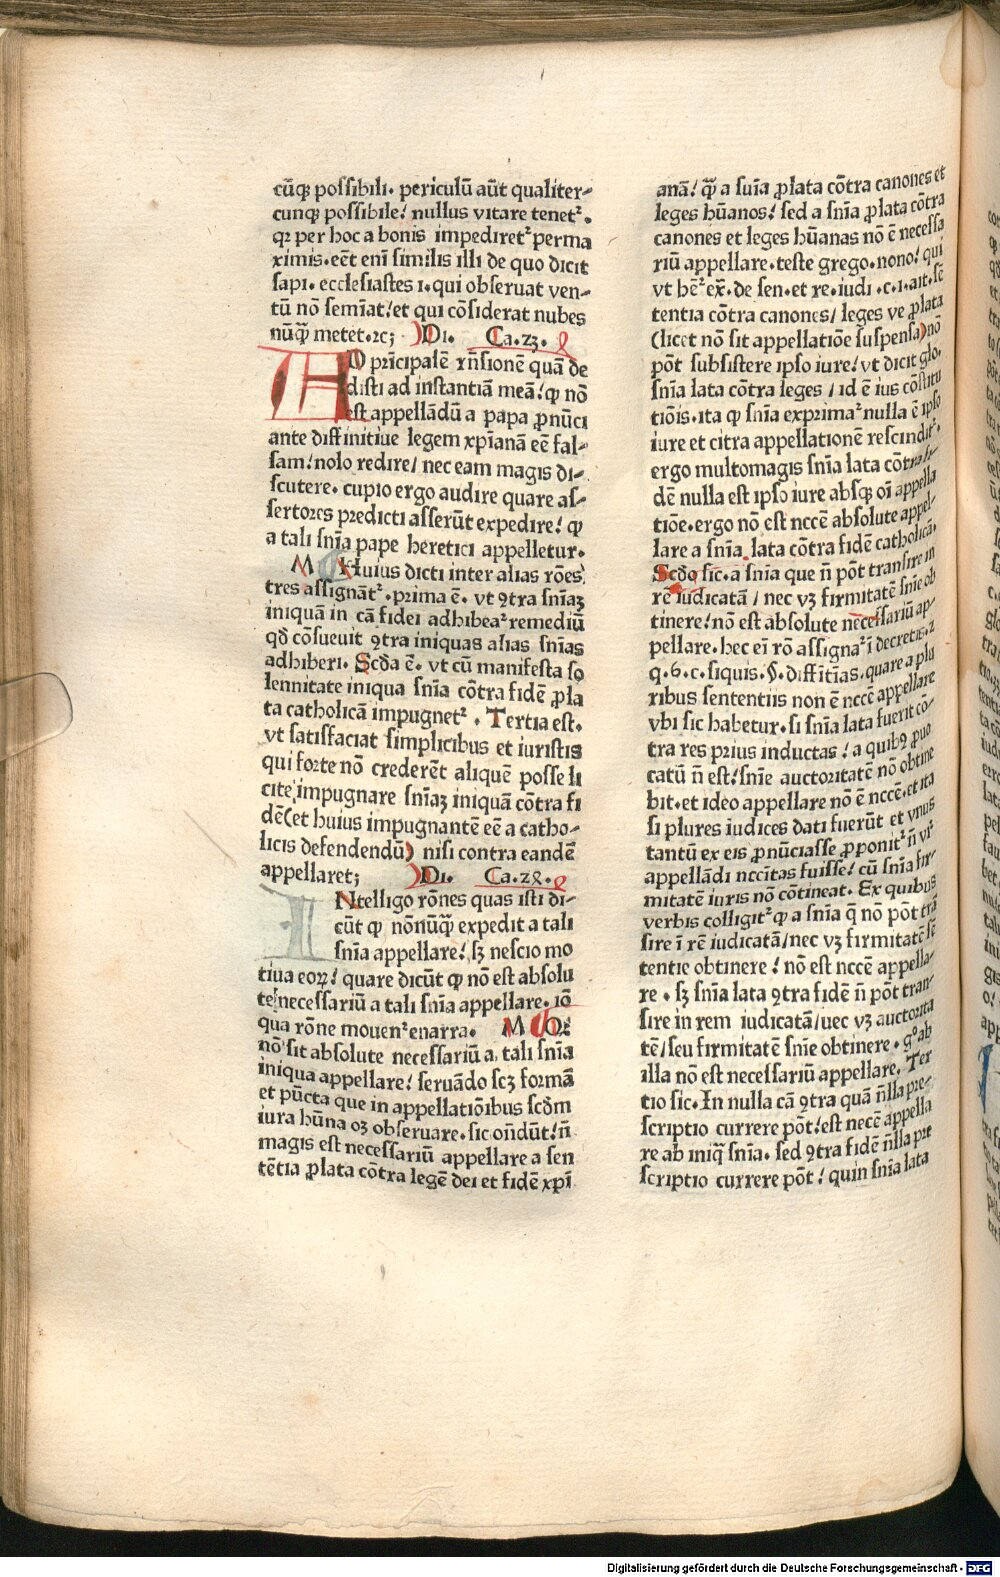 cūqȝ possibili. periculū aūt qualiter-
cunqȝ possibile! nullus vitare tenetꝛ.
qꝛ per hoc a bonis impediretꝛ perma
ximis. eēt eni̅ similis illi de quo dicit
sapi. ecclesiastes i. qui obseruat ven-
tū nō semīat! et qui cōsiderat nubes
nūq̄ metet. ꝛc; Di. Ca. zȝ.
AD prīcipalē rn̄sionē quā de
disti ad instantiā meā! ꝙ nō
est appellādū a papa ꝓnūci
ante diffinitiue legem xp̄ianā eē fal-
sam! nolo redire/ nec eam magis di-
scutere. cupio ergo audire quare as-
sertores predicti asserūt expedire! ꝙ
a tali sn̄ia pape heretici appelletur.
M Huius dicti inter alias rōes
tres assignātꝛ. prima ē. vt ꝯtra sn̄iaȝ
iniquā in cā fidei adhibeaꝛ remediū
qd̄ cōsueuit ꝯtra iniquas alias sn̄ias
adhiberi. Scd̄a ē. vt cū manifesta so
lennitate iniqua sn̄ia cōtra fidē ꝓla
ta catholicā impugnetꝛ. Tertia est.
vt satisfaciat simplicibus et iuristis
qui forte nō crederēt aliquē posse li
cite impugnare sn̄iaȝ iniquā cōtra fi
dē(et huius impugnantē eē a catho-
licis defendendū) nisi contra eandē
appellaret; Di. Ca. zꝝ.
INtelligo rōnes quas isti di-
cūt ꝙ nōnūq̄ expedit a tali
sn̄ia appellare! sȝ nescio mo
tiua eoꝝ! quare dicūt ꝙ nō est absolu
te necessariū a tali sn̄ia appellare. iō
qua rōne mouenꝛ enarra. M Qꝙ
nō sit absolute necessariū a tali sn̄ia
iniqua appellare! seruādo scȝ formā
et pūcta que in appellatiōibus scd̄m
iura hūna oȝ obseruare. sic on̄dūt! n̄
magis est necessariū appellare a sen
tētia ꝓlata cōtra legē dei et fidē xp̄i
anā! q̄ a sn̄ia ꝓlata cōtra canones et
leges hūanos! sed a sn̄ia ꝓlata cōtra
canones et leges hūanas nō ē necessa
riū appellare. teste grego. nono! qui
vt hēꝛ ex̄. de sen. et re. iudi. c. i. ait. sē
tentia cōtra canones/ leges ve ꝓlata
(licet nō sit appellatiōe suspensa)nō
pōt subsistere ipso iure! vt dicit glo.
sn̄ia lata cōtra leges/ id ē ius cōstitu
tiōis. ita ꝙ sn̄ia exprimaꝛ nulla ē ipso
iure et citra appellationē rescinditꝛ.
ergo multomagis sn̄ia lata cōtra fi-
dē nulla est ipso iure absqȝ oī appella
tiōe. ergo nō est nccē absolute appel-
lare a sn̄ia lata cōtra fidē catholicā.
Scd̄o sic. a sn̄ia que n̄ pōt transire in
rē iudicatā/ nec vȝ firmitatē sn̄ie ob
tinere! nō est absolute necessariū ap-
pellare. hec ei̅ rō assignaꝛ ī decretis. z
q. 6. c. siquis. §. diffitīas. quare a plu
ribus sententiis non ē nccē appellare
vbi sic habetur. si sn̄ia lata fuerit cō-
tra res prius inductas! a quibꝰ ꝓuo
catū n̄ est! sn̄ie auctoritatē nō obtine
bit. et ideo appellare nō ē nccē. et ita
si plures iudices dati fuerūt et vnus
tantū ex eis ꝓnūciasse ꝓponitꝛ n̄ vrꝛ
appellādi nccītas fuisse! cū sn̄ia fir-
mitatē iuris nō cōtineat. Ex quibus
verbis colligitꝛ ꝙ a sn̄ia q̄ nō pōt trā
sire ī rē iudicatā/ nec vȝ firmitatē sē
tentie obtinere! nō est nccē appella-
re. sȝ sn̄ia lata ꝯtra fidē n̄ pōt tran-
sire in rem iudicatā/ uec vȝ auctorita
tē/ seu firmitatē sn̄ie obtinere. gº ab
illa nō est necessariū appellare. Ter
tio sic. In nulla cā ꝯtra quā n̄lla pre-
scriptio currere pōt! est necē appella
re ab iniq̄ sn̄ia. sed ꝯtra fidē n̄lla pre
scriptio currere pōt! quin sn̄ia lata
Digitalisierung gefördert durch die Deutsche Forschungsgemeinschaft - DFG